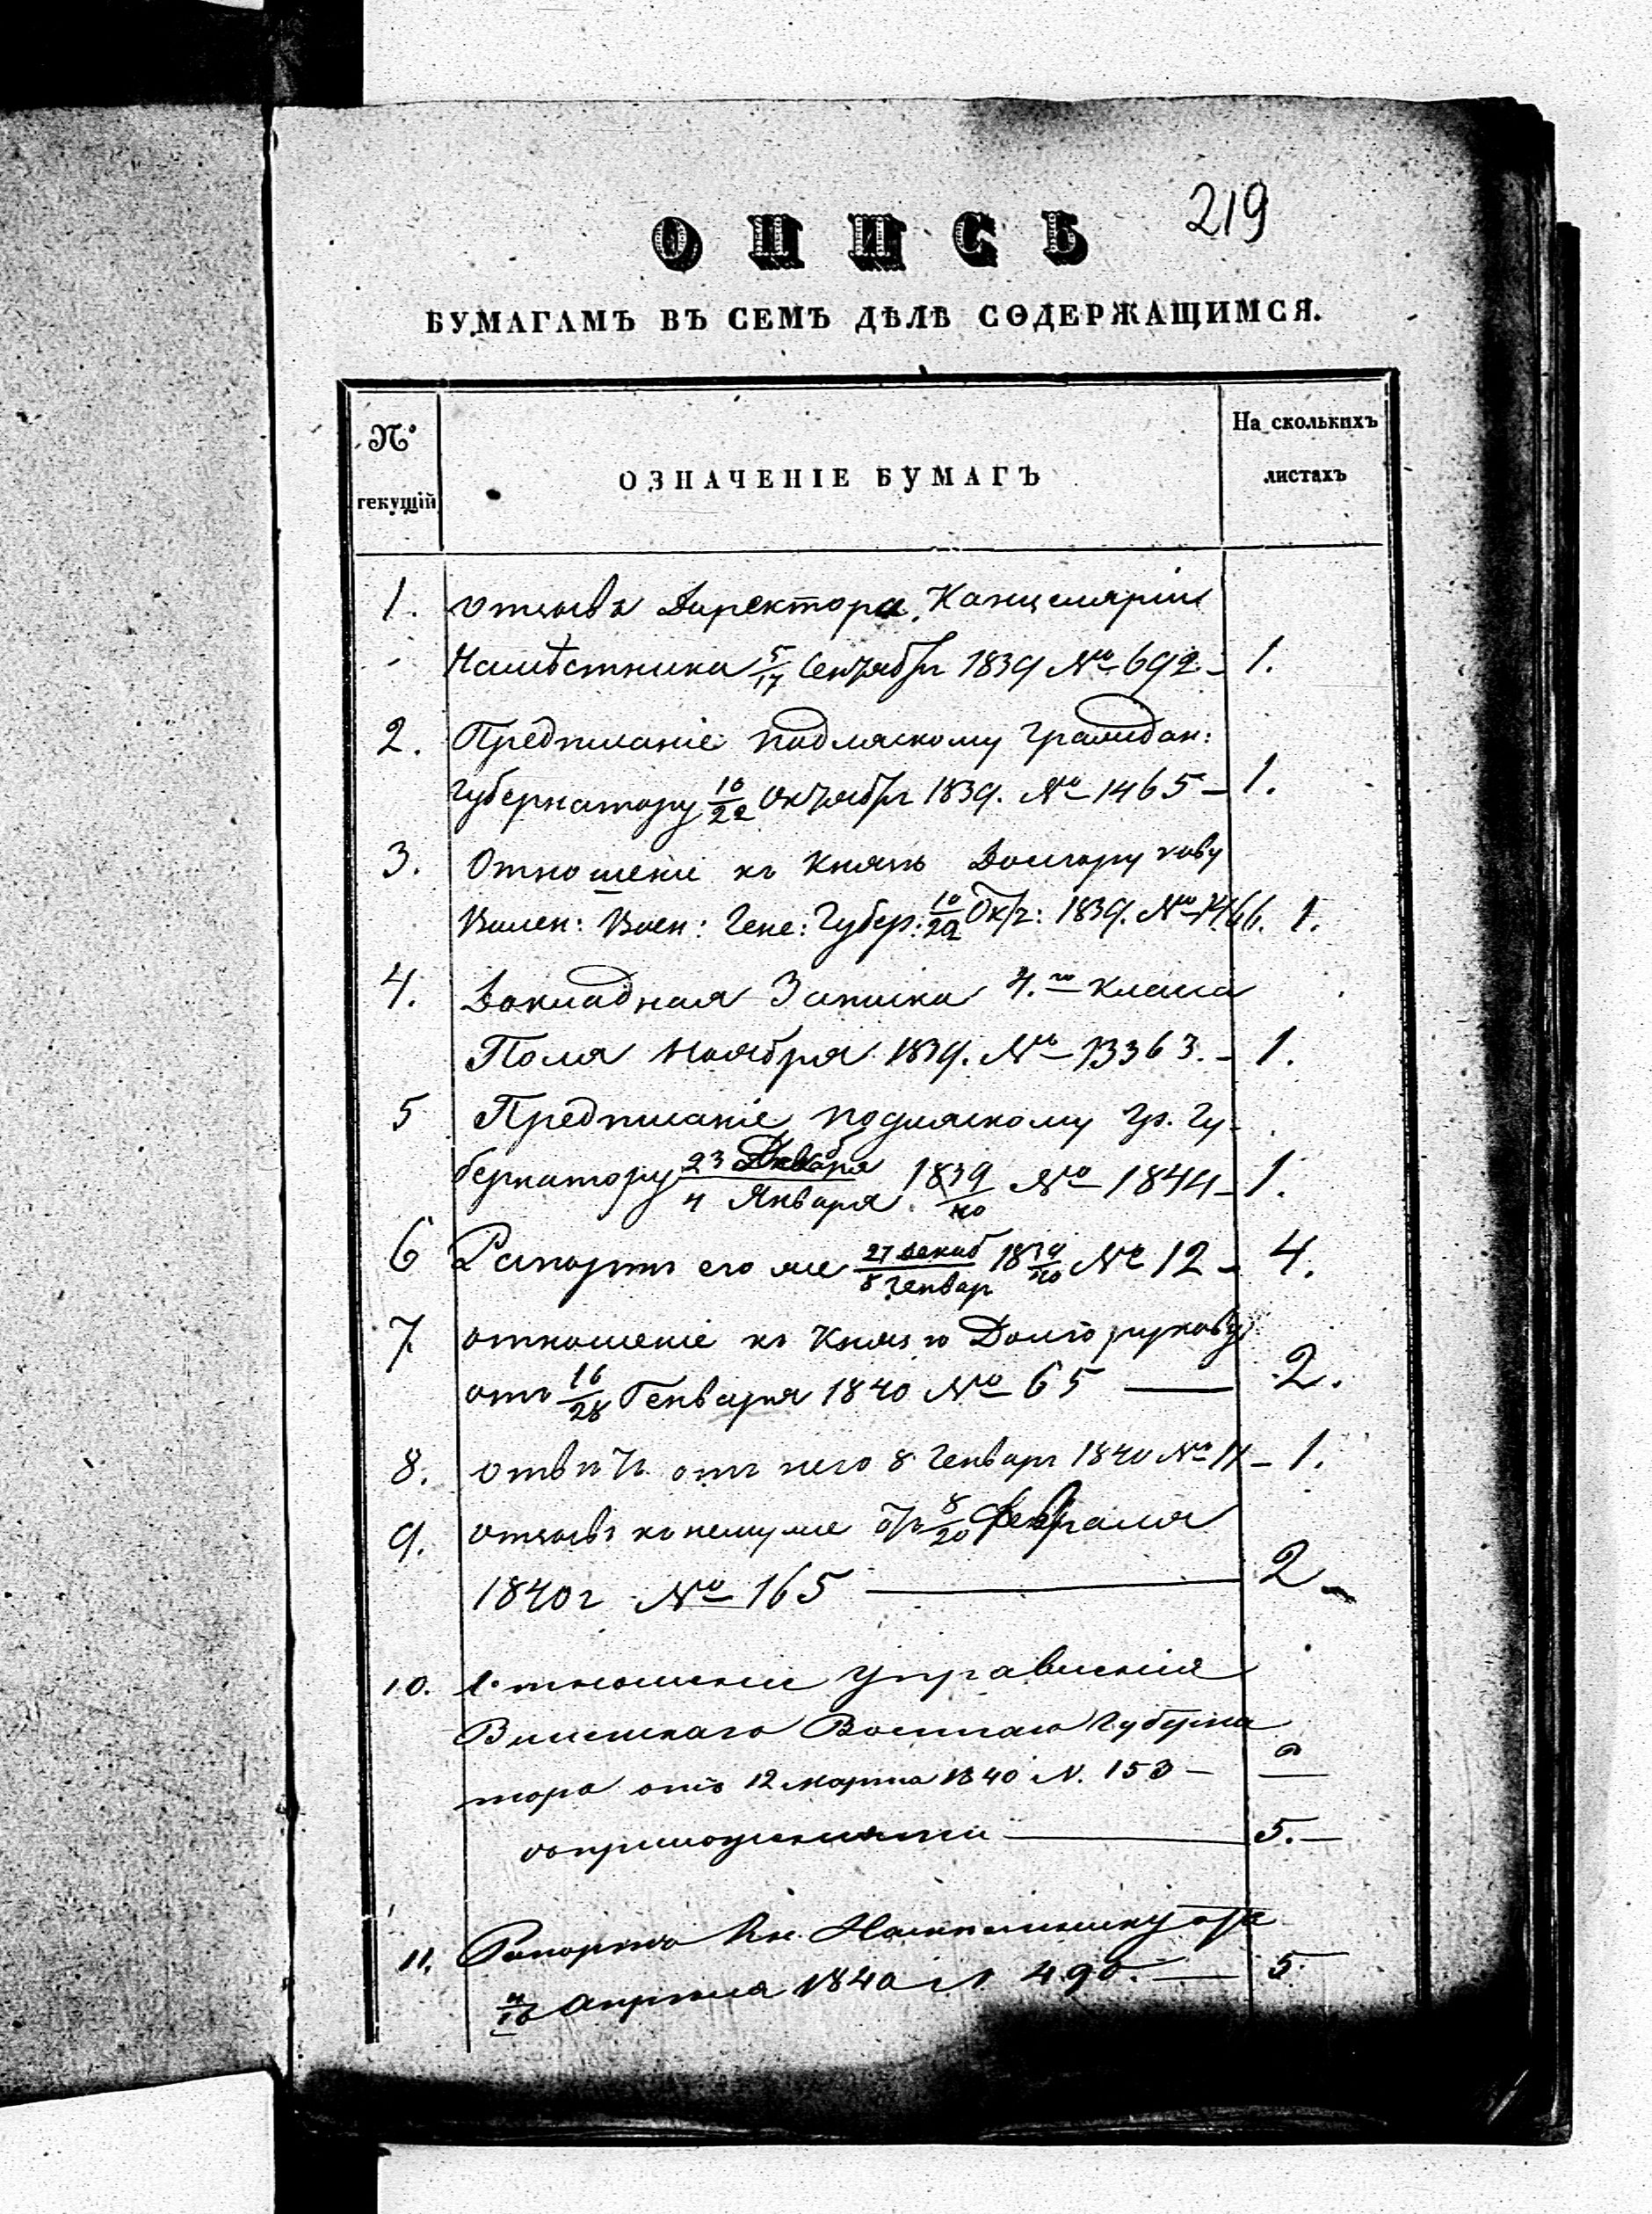 219
ОПИСЬ
БУМАГАМЪ ВЪ СЕМЪ ДѢЛѢ СОДЕРЖАЩИМСЯ.
№ текущій
ОЗНАЧЕНІЕ БУМАГЪ
На сколькихъ листахъ
1. отзывъ Директора Канцеляріи
Намѣстника 5/17 Сентября 1839 № 692 - 1.
2. Предписаніе подляскому граждан:
губернатору 10/22 Октября 1839. № 1465 - 1.
3. Отношеніе къ Князю Долгорукову
Вилен: Воен: Гене: Губер: 10/22 Окт: 1839. № 1466. 1.
4. Докладная Записка 4.го класса
Поля Ноября 1839. № 13363. - 1.
5 Предписаніе подляскому гр. гу-
бернатору 23 Декабря/4 Января 1839/40 № 1844 - 1.
6 Рапортъ его же 27 декаб/8 генвар 1839/40 № 12 - 4.
7. отношеніе къ Князю Долгорукову
отъ 16/28 Генваря 1840 № 65 — 2.
8. отвѣтъ отъ него 8 генваря 1840 № 11 - 1.
9. отзывъ къ нему же отъ 8/20 Февраля
1840 г № 165 — 2
10. Отношеніе управленія
Виленскаго Военнаго Губерна
тора отъ 12 марта 1840 N. 153 -
съ приложеніями — 5. —
11. Рапортъ Кн. Намѣстнику отъ
апрѣля 1840 N 490. — 5.